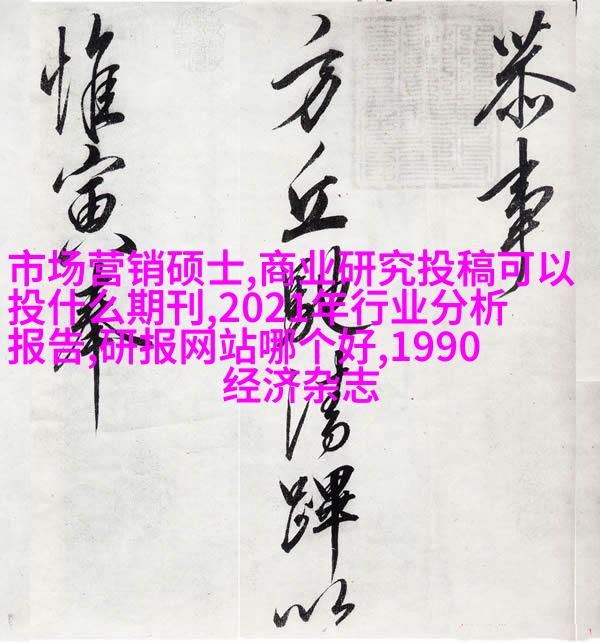 恭事
方丘馳清蹕以
惟寅奉
市场营销硕士,商业研究投稿可以
投什么期刊,2021年行业分析
报告,研报网站哪个好,1990
经济杂志